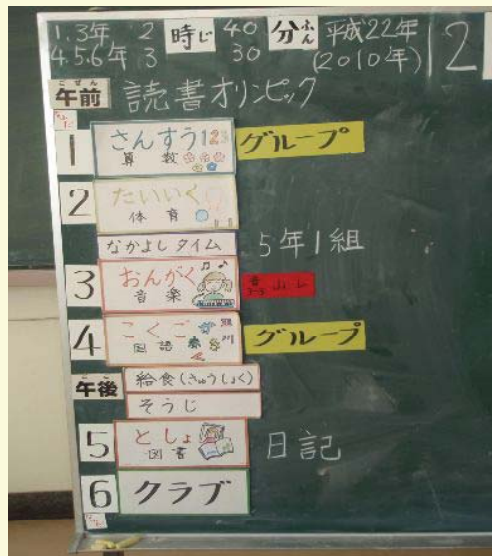 1.3年 2 時じ 40 分ふん 平成22年 12
4.5.6年 3 30 (2010年)
ごぜん
午前 読書オリンピック
1 さんすう123 グループ
算数
2 たいいく
体育
なかよしタイム 5年1組
3 おんがく
音楽
4 こくご グループ
国語
午後 給食(きゅうしょく)
そうじ
5 としょ 日記
図書
6 クラブ